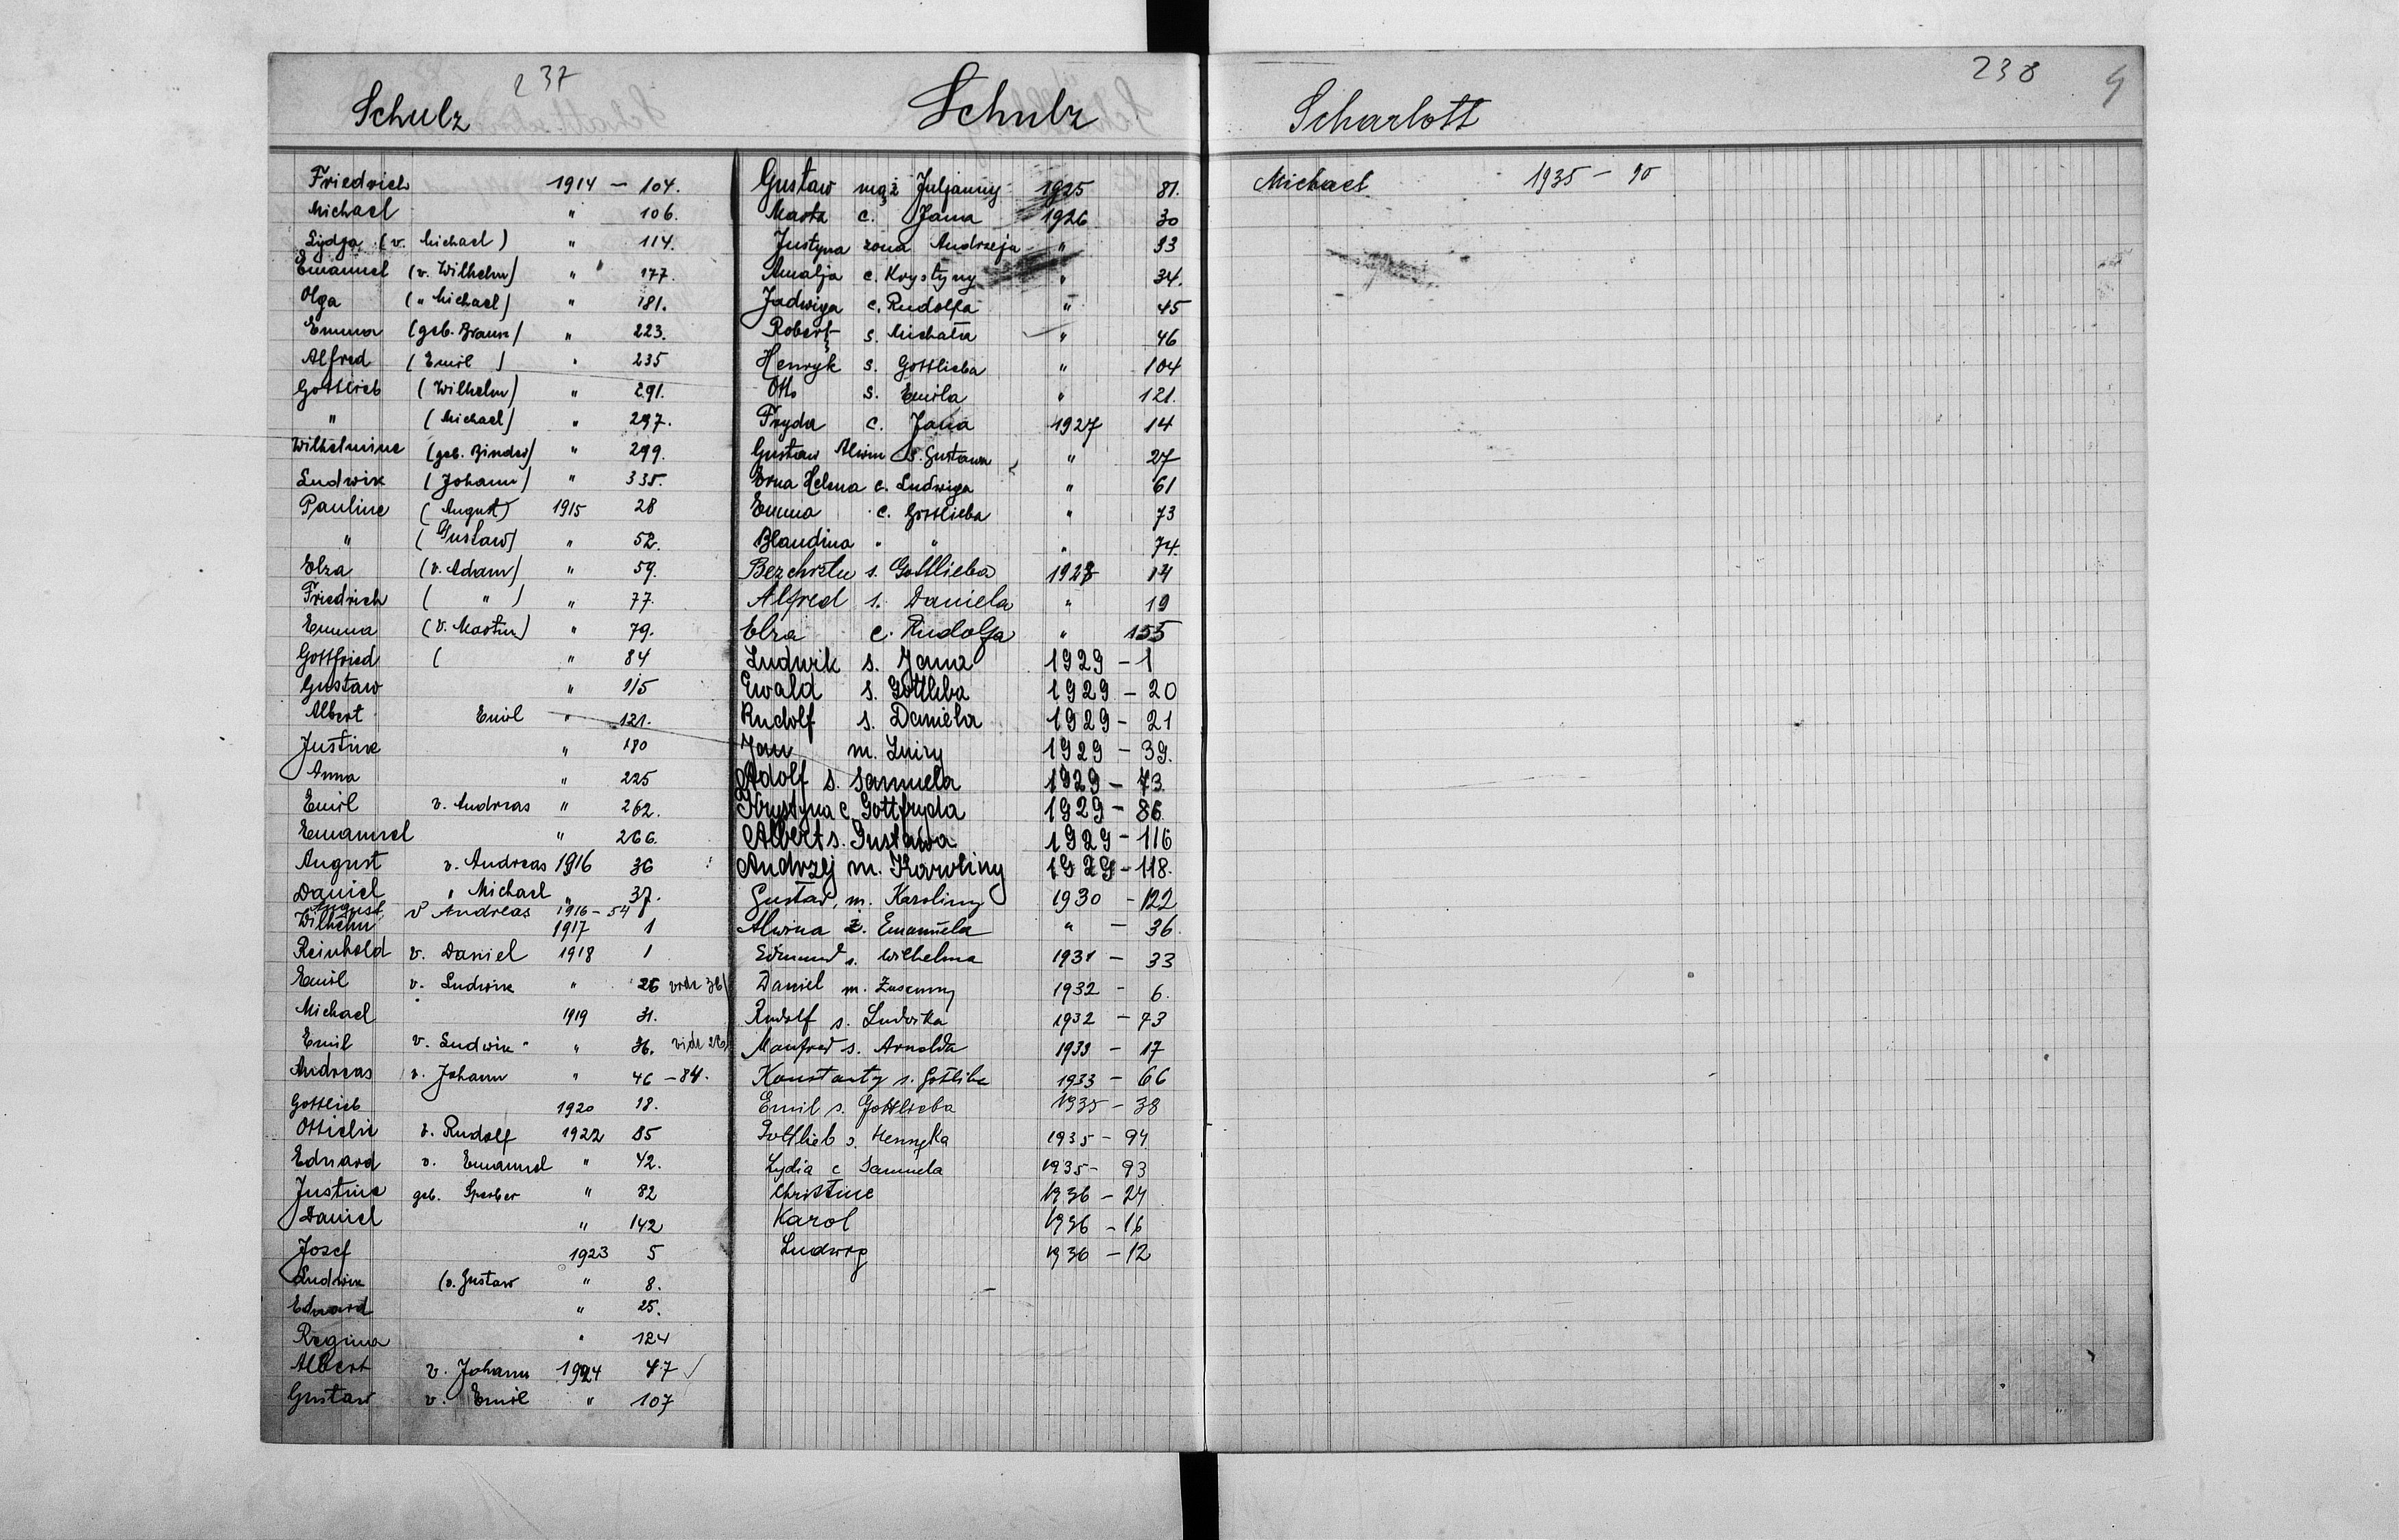 237
Schulz
Friedrich 1914 - 104.
Michael " 106.
Lydja (v. Michael) " 114.
Emanuel (v. Wilhelm) " 177.
Olga (" Michael) " 181.
Emma (geb. Braun) " 223.
Alfred (Emil) " 235
Gottlieb (Wilhelm) " 291.
" (Michael) " 297.
Wilhelmine (geb. Binder) " 299.
Ludwik (Johann) " 335.
Pauline (August) 1915 28
" (Gustaw) " 52.
Elza (v. Adam) " 59.
Friedrich ( " ) " 77.
Emma (v. Martin) " 79.
Gottfried ( " 84
Gustaw " 115
Albert Emil " 121.
Justine " 180
Anna " 225
Emil v. Andreas " 262.
Emanuel " 266.
August v. Andreas 1916 36
Daniel " Michael " 37.
August v Andreas 1916 - 54
Wilhelm 1917 1
Reinhold v. Daniel 1918 1
Emil v. Ludwik " 26 vide 36)
Michael 1919 31.
Emil v. Ludwik " 36. vide 26)
Andreas v. Johann " 46 - 84.
Gottlieb 1920 18.
Ottielie v. Rudolf 1922 85
Eduard v. Emanuel " 42.
Justine geb. Sperber " 82
Daniel " 142
Josef 1923 5
Ludwik (v. Gustaw " 8.
Eduard " 25.
Regina " 124
Albert v. Johann 1924 47 ✓
Gustaw v. Emil " 107
Schulz
Gustaw mąż Juljanny 1925 81.
Marta c. Jana 1926 30
Justyna żona Andrzeja " 33
Amalja c. Krystyny " 34.
Jadwiga c. Rudolfa " 45
Robert s. Michała " 46
Henryk s. Gottlieba " 104
Otto s. Emila " 121.
Fryda c. Jana 1927 14
Gustaw Alwin s. Gustawa " 27
Erna Helena c. Ludwiga " 61
Emma c. Gottlieba " 73
Blandina " " " 74.
Bez chrztu s. Gottlieba 1928 14
Alfred s. Daniela " 19
Elza c. Rudolfa " 155
Ludwik s. Jana 1929 - 1
Ewald s. Gottliba 1929 - 20
Rudolf s. Daniela 1929 - 21
Jan m. Luizy 1929 - 39.
Adolf s. Samuela 1929 - 73.
Krystyna c. Gottfryda 1929 - 86
Albert s. Gustawa 1929 - 116
Andrzej m. Karoliny 1929 - 118.
Gustav, m. Karoliny 1930 - 122
Alwina ż. Emanuela " - 36.
Edmund s. Wilhelma 1931 - 33
Daniel m. Zuzanny 1932 - 6.
Rudolf s. Ludwika 1932 - 73
Manfred s. Arnolda 1933 - 17
Konstanty s. Gotliba 1933 - 66
Emil s. Gottlieba 1935 - 38
Gottlieb s. Henryka 1935 - 94
Lydia c Samuela 1935 - 93
Christine 1936 - 24
Karol 1936 - 16
Ludwig 1936 - 12
238
Scharlott
Michael 1935 - 90